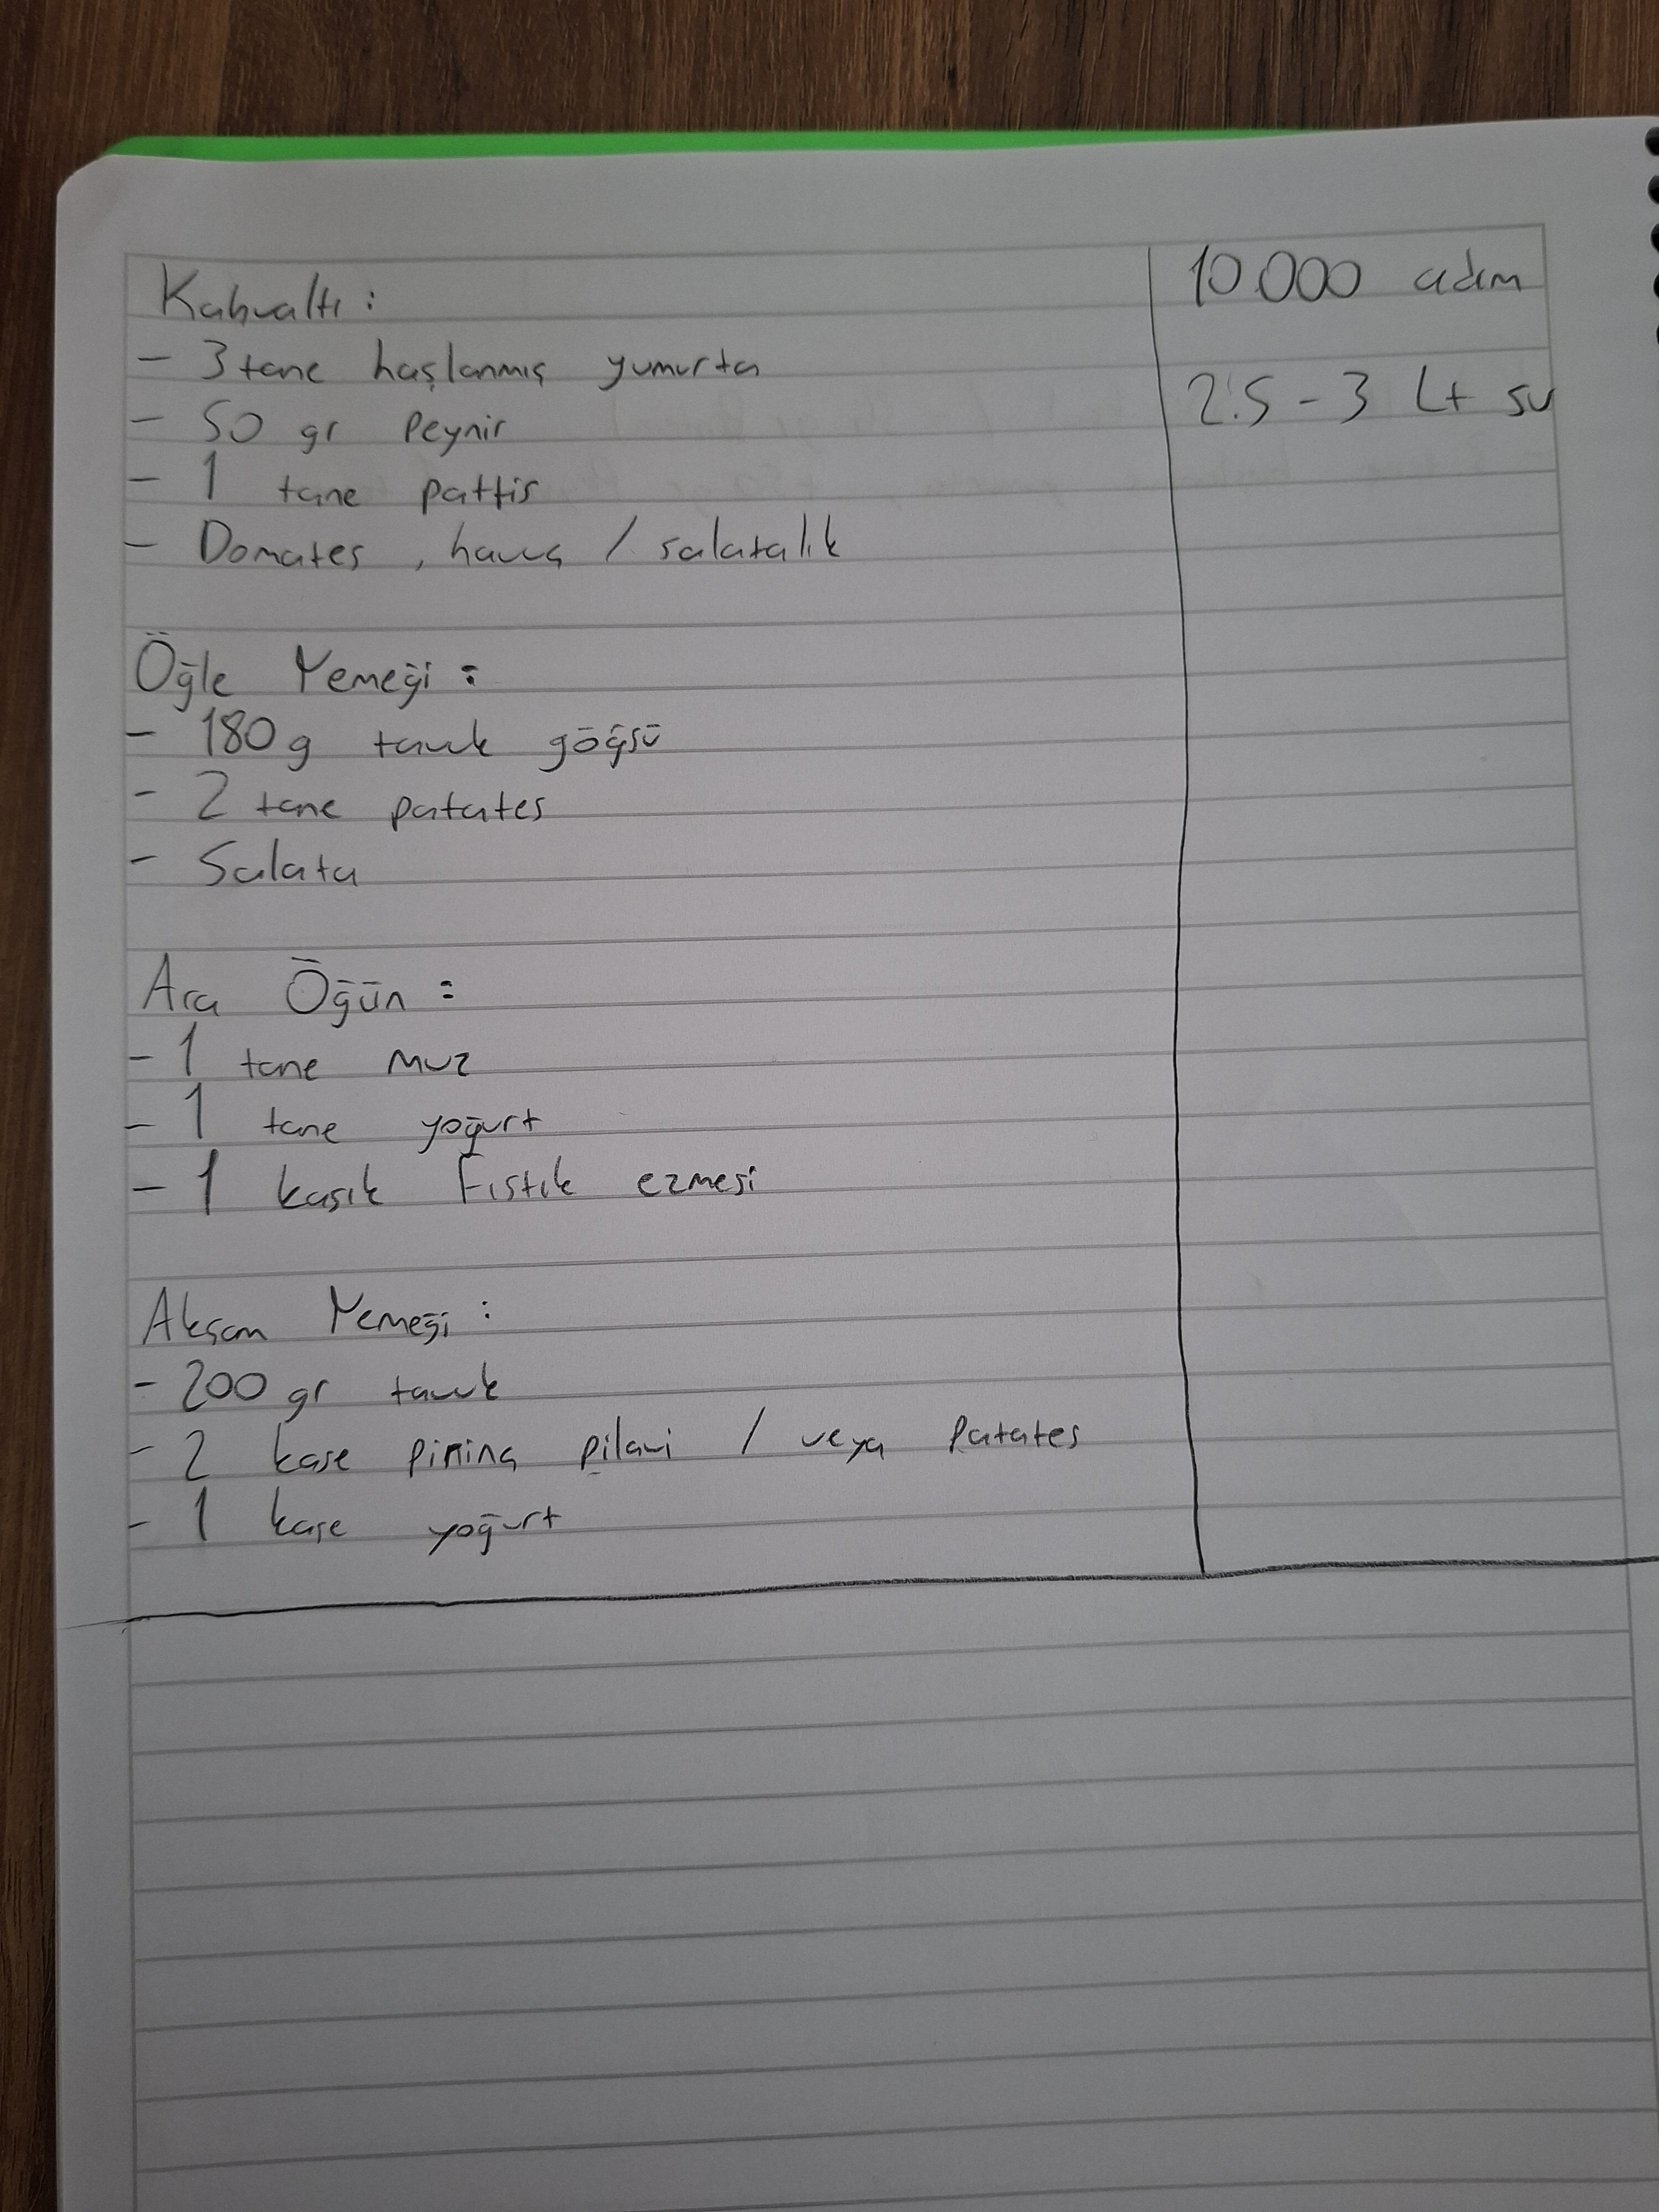 Kahvaltı :
- 3 tane haşlanmış yumurta
- 50 gr Peynir
- 1 tane pattis
- Domates , havuç / salatalık
Öğle Yemeği :
- 180 g tavuk göğsü
- 2 tane patates
- Salata
Ara Öğün :
- 1 tane muz
- 1 tane yoğurt
- 1 kaşık Fıstık ezmesi
Akşam Yemeği :
- 200 gr tavuk
- 2 kase pirinç pilavi / veya Patates
- 1 kase yoğurt
10.000 adım
2.5 - 3 Lt su